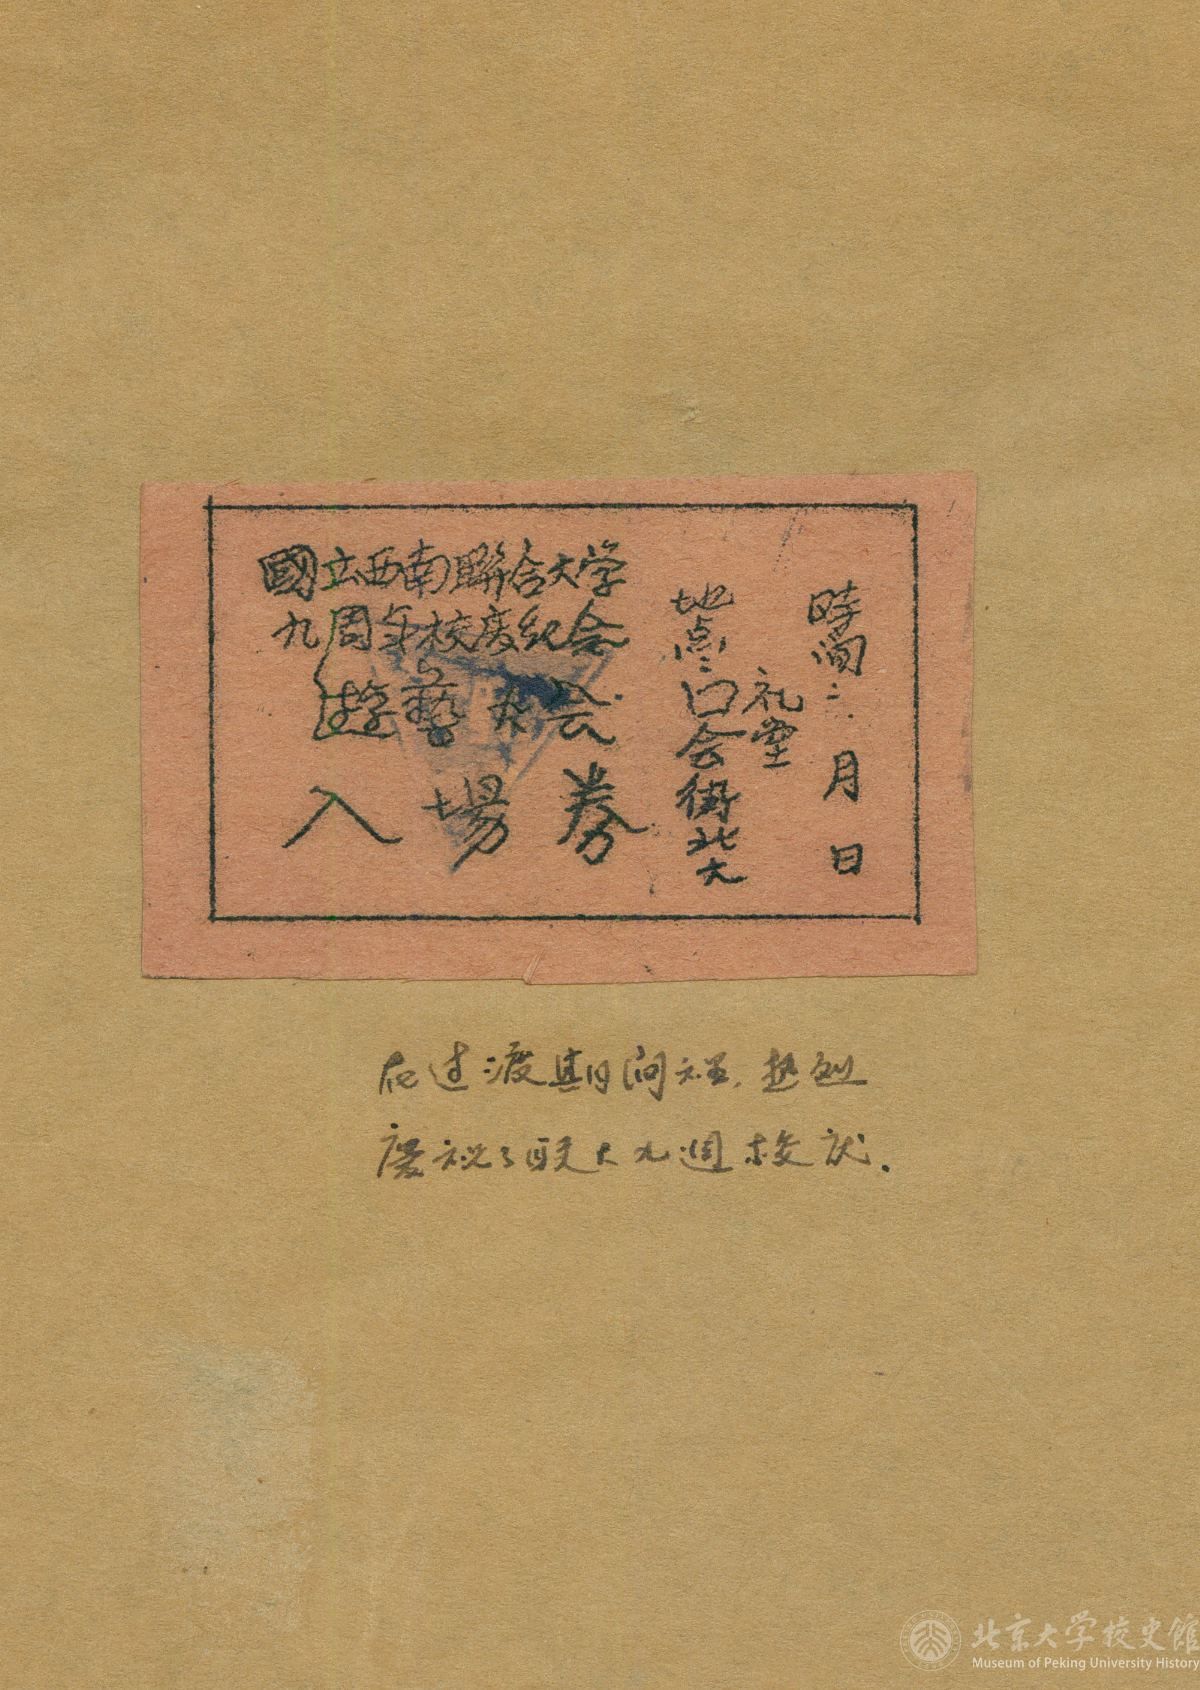 國立西南聯合大学
九周年校庆纪念
遊藝大会
入場券
時间：
月 日
地点：囗会街北大
礼堂
在过渡期间裡，热烈
庆祝了联大九週校庆．
北京大学校史館
Museum of Peking University History